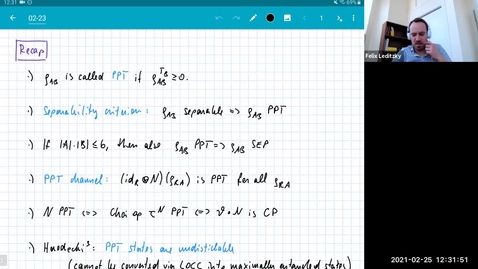 12:31
89%
02-23
Recap
·) ρ_AB is called PPT if ρ_AB^{T_B} ≥ 0.
·) Separability criterion: ρ_AB separable ⟹ ρ_AB PPT
·) If |A|·|B| ≤ 6, then also ρ_AB PPT ⟹ ρ_AB SEP
·) PPT channel: (id_R ⊗ N)(ρ_RA) is PPT for all ρ_RA
·) N PPT ⟺ Choi op τ^N PPT ⟺ ϑ∘N is CP
·) Horodecki³: PPT states are undistillable
(cannot be converted via LOCC into maximally entangled states)
Felix Leditzky
2021-02-25 12:31:51